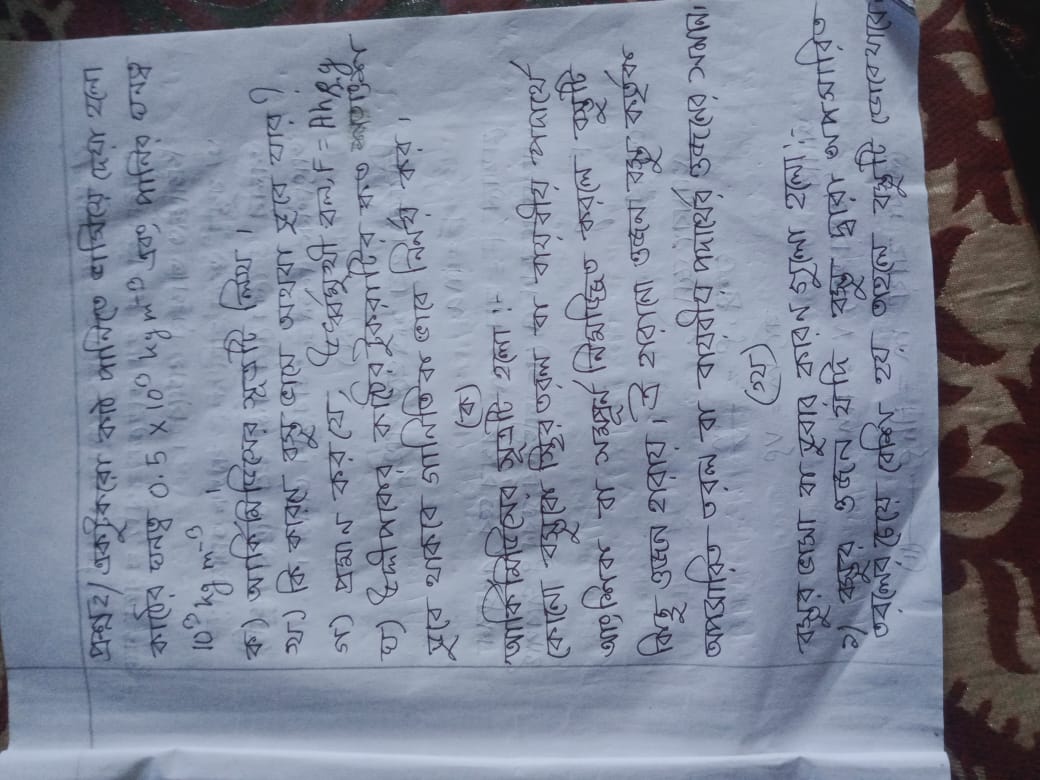 প্রশ্ন২/ একটুকরো কাঠ পানিতে ভাসিয়ে দেয়া হলো
কাঠের ঘনত্ব 0.5 × 10³ kg m⁻³ এবং পানির ঘনত্ব
10³ kg m⁻³ ।
ক) আর্কিমিডিসের সূত্রটি লিখ ।
খ) কি কারনে বস্তু ভাসে অথবা ডুবে যায় ?
গ) প্রমান কর যে, উর্ধ্বমুখী বল F = Ahρg
ঘ) উদ্দীপকের কাঠের টুকরাটির কত অংশ
ডুবে থাকবে গানিতিক ভাবে নির্ণয় কর ।
(ক)
আর্কিমিডিসের সূত্রটি হলো :-
কোনো বস্তুকে স্থির তরল বা বায়বীয় পদার্থে
আংশিক বা সম্পূর্ণ নিমজ্জিত করলে বস্তুটি
কিছু ওজন হারায় । ঐ হারানো ওজন বস্তু কর্তৃক
অপসারিত তরল বা বায়বীয় পদার্থের ওজনের সমান।
(খ)
বস্তুর ভাসা বা ডুবার কারন গুলো হলো :
১) বস্তুর ওজন যদি বস্তু দ্বারা অপসারিত
তরলের চেয়ে বেশি হয় তাহলে বস্তুটি ডোবে যাবে।